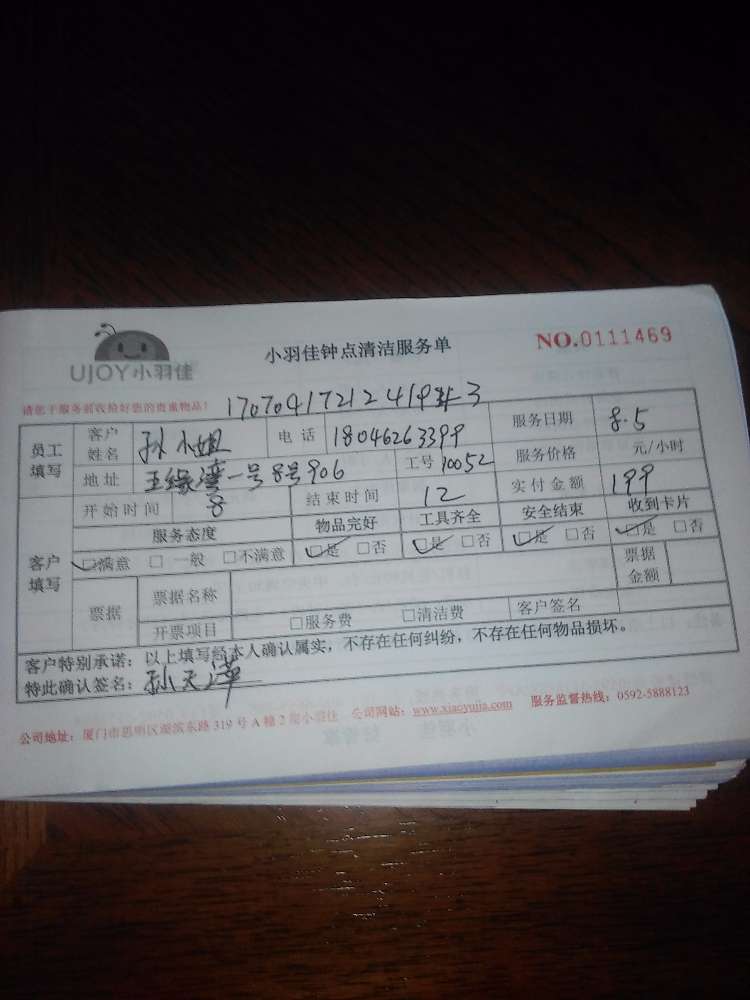 UJOY小羽佳
小羽佳钟点清洁服务单
NO.0111469
请您于服务前收给好您的贵重物品!
员工填写 客户姓名 孙小姐 电话 18046263399 服务日期 8.5
地址 一号8号906 工号 10052 服务价格 元/小时
开始时间 8 结束时间 12 实付金额 199
客户填写 服务态度 物品完好 工具齐全 安全结束 收到卡片
□满意 □一般 □不满意 □是 □否 □是 □否 □是 □否 □是 □否
票据 票据名称 票据金额
开票项目 □服务费 □清洁费 客户签名
客户特别承诺:以上填写经本人确认属实,不存在任何纠纷,不存在任何物品损坏。
特此确认签名:孙天萍
公司地址:厦门市思明区湖滨东路 319 号 A 幢 2 楼小羽佳 公司网站:www.xiaoyujia.com 服务监督热线:0592-5888123